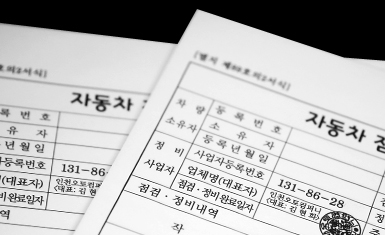 [별지 제89호의2서식]
자동차 점
차 량
소유자
등 록 번 호
소 유 자
등록년월일
정 비
사업자
사업자등록번호
131-86-28
업체명(대표자)
인천오토컴퍼니
(대표: 김 현 회)
점검·정비완료일자
점검·정비내역
작
호의2서식]
자동차 점
록 번 호
유 자
년 월 일
자등록번호
131-86-
(대표자)
인천오토컴퍼니
(대표: 김 현
비완료일자
역